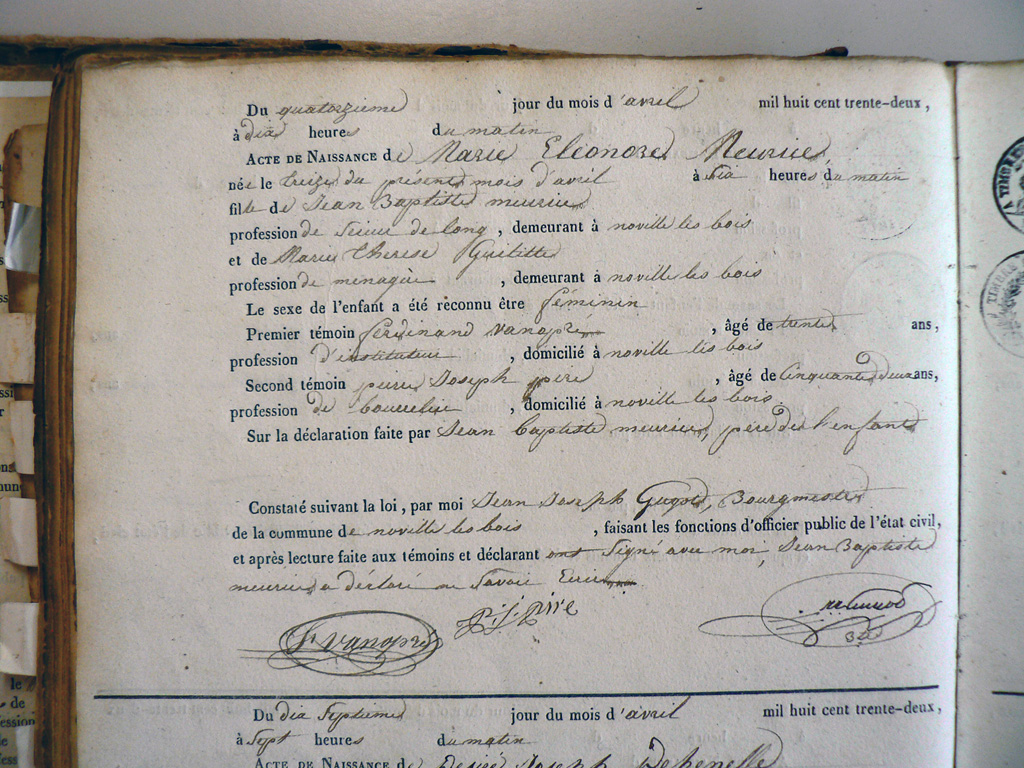 Du quatorzieme jour du mois d'avril mil huit cent trente-deux,
à dix heures du matin
ACTE DE NAISSANCE de Marie Eleonore Meurice,
née le treize du présent mois d'avril à dix heures du matin
fille de Jean Baptiste meurice
profession de Sieur de long, demeurant à noville les bois
et de Marie Therese
profession de menagère, demeurant à noville les bois
Le sexe de l'enfant a été reconnu être féminin
Premier témoin ferdinand vanopré, âgé de trente ans,
profession d'instituteur, domicilié à noville les bois
Second témoin pierre Joseph pire, âgé de Cinquante deux ans,
profession de bourrelier, domicilié à noville les bois.
Sur la déclaration faite par Jean baptiste meurice, père de l'enfant
Constaté suivant la loi, par moi Jean Joseph Bourgmestre
de la commune de noville les bois, faisant les fonctions d'officier public de l'état civil,
et après lecture faite aux témoins et déclarant ont Signé avec moi, Jean Baptiste
meurice a déclaré ne Savoir Ecrire
f. vanopré P. J. Pire
Du dix Septieme jour du mois d'avril mil huit cent trente-deux,
à Sept heures du matin
ACTE DE NAISSANCE de Desiré Joseph Dehenelle